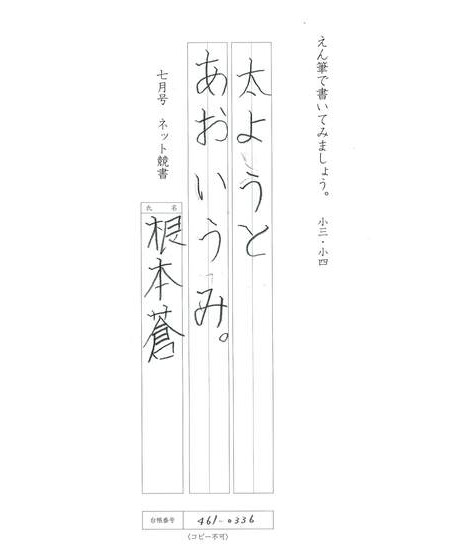 えん筆で書いてみましょう。 小三・小四
太ようと
あおいうみ。
七月号 ネット競書
氏名
根本蒼
台帳番号 461-0336
(コピー不可)